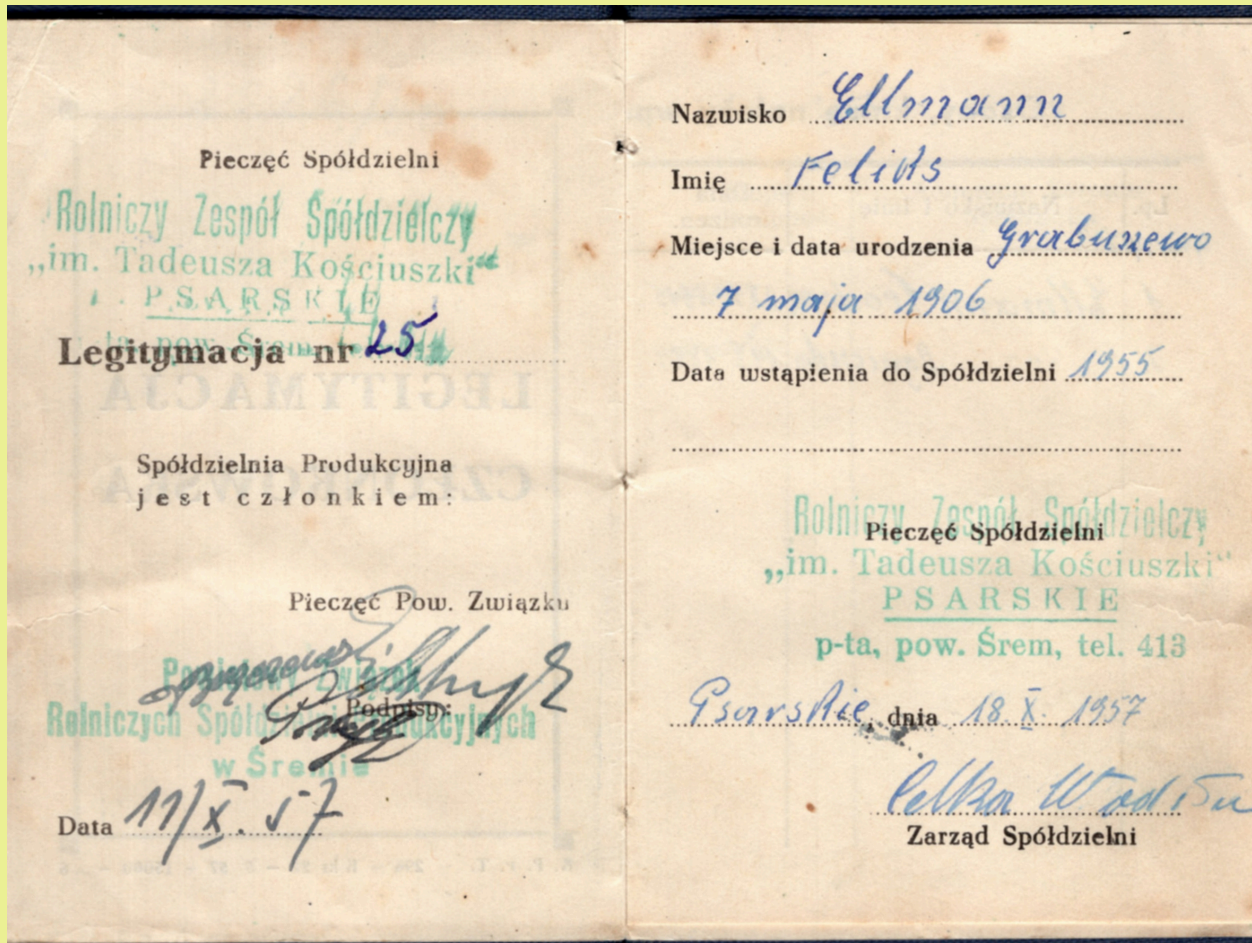 Pieczęć Spółdzielni
Rolniczy Zespół Spółdzielczy
„im. Tadeusza Kościuszki"
PSARSKIE
pow. Śrem
Legitymacja nr 25
LEGITYMACJA
CZŁONKOWSKA
Spółdzielnia Produkcyjna
jest członkiem:
Pieczęć Pow. Związku
Powiatowy Związek
Rolniczych Spółdzielni Produkcyjnych
w Śremie
Podpisy:
Data 11/X. 57
Nazwisko Ellmann
Imię Feliks
Miejsce i data urodzenia Grabuszewo
7 maja 1906
Data wstąpienia do Spółdzielni 1955
Rolniczy Zespół Spółdzielczy
Pieczęć Spółdzielni
„im. Tadeusza Kościuszki"
PSARSKIE
p-ta, pow. Śrem, tel. 413
Psarskie, dnia 18.X.1957
Celka
Zarząd Spółdzielni